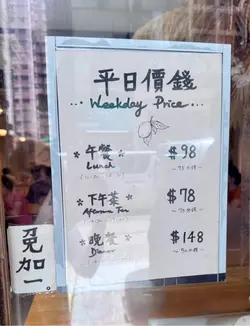 平日價錢
Weekday Price
午餐 $98
Lunch
下午茶 $78
Afternoon Tea
晚餐 $148
Dinner
免加一。